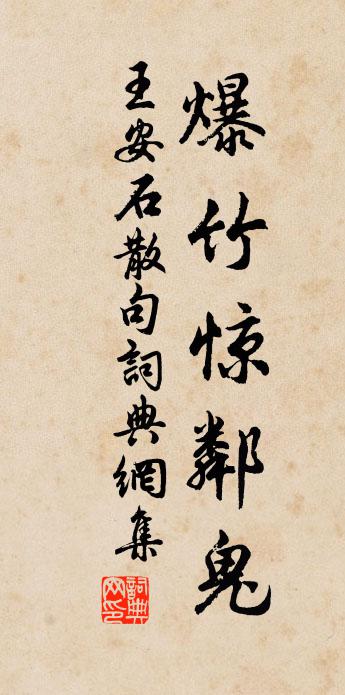 爆竹惊鄰鬼
王安石散句詞典網集
詞典网印